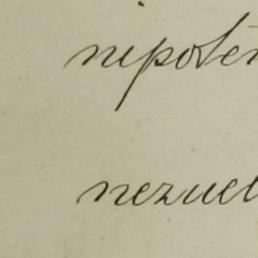 nipoten
nezuel